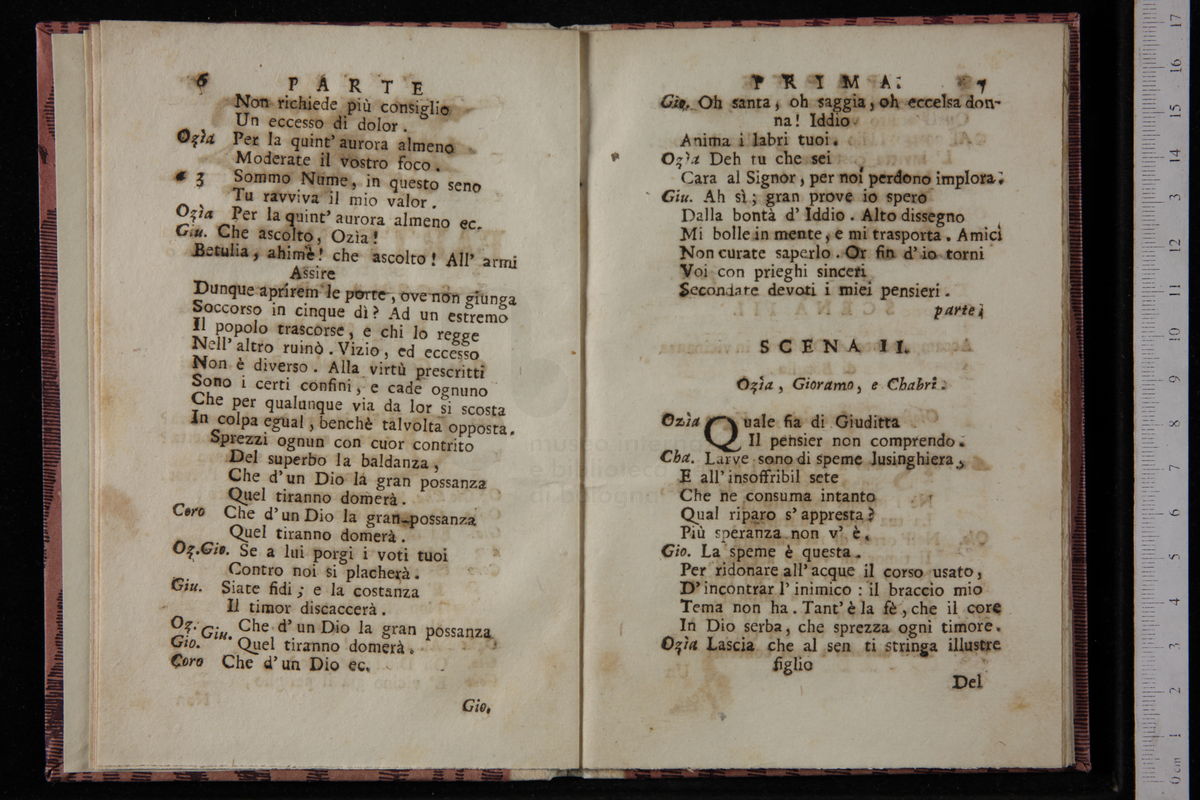 6 PARTE
Non richiede più consiglio
Un eccesso di dolor.
Ozìa Per la quint' aurora almeno
Moderate il vostro foco.
a 3 Sommo Nume, in questo seno
Tu ravviva il mio valor.
Ozìa Per la quint' aurora almeno ec.
Giu. Che ascolto, Ozìa!
Betulia, ahimè! che ascolto! All' armi
Assire
Dunque aprirem le porte, ove non giunga
Soccorso in cinque dì? Ad un estremo
Il popolo trascorse, e chi lo regge
Nell' altro ruinò. Vizio, ed eccesso
Non è diverso. Alla virtù prescritti
Sono i certi confini, e cade ognuno
Che per qualunque via da lor si scosta
In colpa egual, benchè talvolta opposta.
Sprezzi ognun con cuor contrito
Del superbo la baldanza,
Che d' un Dio la gran possanza
Quel tiranno domerà.
Coro Che d' un Dio la gran possanza
Quel tiranno domerà.
Oz. Gio. Se a lui porgi i voti tuoi
Contro noi si placherà.
Giu. Siate fidi; e la costanza
Il timor discaccerà.
Oz. Giu. Che d' un Dio la gran possanza
Gio. Quel tiranno domerà.
Coro Che d' un Dio ec.
Gio.
PRIMA. 7
Gio. Oh santa, oh saggia, oh eccelsa don-
na! Iddio
Anima i labri tuoi.
Ozìa Deh tu che sei
Cara al Signor, per noi perdono implora.
Giu. Ah sì; gran prove io spero
Dalla bontà d' Iddio. Alto dissegno
Mi bolle in mente, e mi trasporta. Amici
Non curate saperlo. Or fin d' io torni
Voi con prieghi sinceri
Secondate devoti i miei pensieri.
parte.
SCENA II.
Ozìa, Gioramo, e Chabrì.
Ozìa Quale fia di Giuditta
Il pensier non comprendo.
Cha. Larve sono di speme lusinghiera,
E all' insoffribil sete
Che ne consuma intanto
Qual riparo s' appresta?
Più speranza non v' è.
Gio. La speme è questa.
Per ridonare all' acque il corso usato,
D' incontrar l' inimico: il braccio mio
Tema non ha. Tant' è la fè, che il core
In Dio serba, che sprezza ogni timore.
Ozìa Lascia che al sen ti stringa illustre
figlio
Del
museo interna
e biblioteca
di bologna
0 cm 1 2 3 4 5 6 7 8 9 10 11 12 13 14 15 16 17